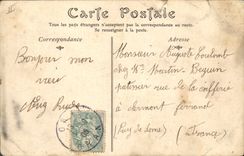 Carte Postale
Tous les pays étrangers n'acceptent pas la correspondance au recto.
Se renseigner à la poste.
Correspondance
Adresse
Bonjour mon
vieux
Monsieur Auguste
chez Mr Martin
rue de la
à clermont ferrand
(Puy de dome)
(France)